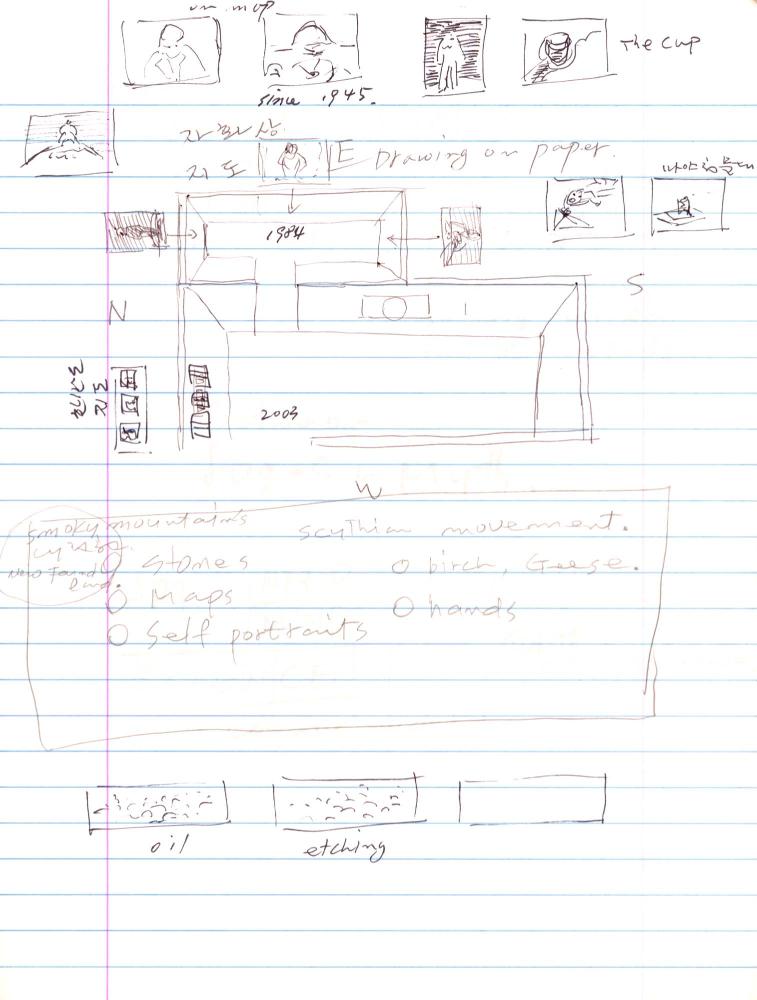 on map
The cup
since 1945.
자화상
지도
E Drawing on paper.
1984
S
N
지도
2003
W
Smoky mountains
Scythian movement.
Stones
birch, Geese.
New Found land.
Maps
hands
Self portraits
oil
etching